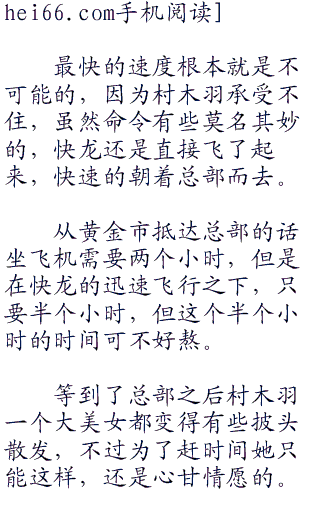 hei66.com手机阅读]
最快的速度根本就是不
可能的，因为村木羽承受不
住，虽然命令有些莫名其妙
的，快龙还是直接飞了起
来，快速的朝着总部而去。
从黄金市抵达总部的话
坐飞机需要两个小时，但是
在快龙的迅速飞行之下，只
要半个小时，但这个半个小
时的时间可不好熬。
等到了总部之后村木羽
一个大美女都变得有些披头
散发，不过为了赶时间她只
能这样，还是心甘情愿的。